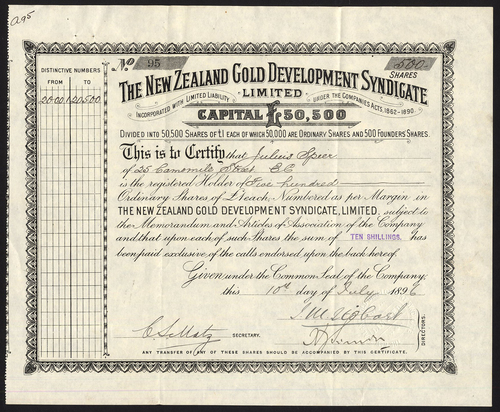 a95
No 95
500
SHARES
DISTINCTIVE NUMBERS
FROM TO
20001 20,500
THE NEW ZEALAND GOLD DEVELOPMENT SYNDICATE
LIMITED
INCORPORATED WITH LIMITED LIABILITY UNDER THE COMPANIES ACTS, 1862-1890.
CAPITAL £50,500
DIVIDED INTO 50,500 SHARES OF £1 EACH OF WHICH 50,000 ARE ORDINARY SHARES AND 500 FOUNDERS SHARES.
This is to Certify that Julius Speer
of 25 Camomile Street E.C
is the registered Holder of Five hundred
Ordinary Shares of £1 each, Numbered as per Margin in
THE NEW ZEALAND GOLD DEVELOPMENT SYNDICATE, LIMITED, subject to
the Memorandum and Articles of Association of the Company
and that upon each of such Shares the sum of TEN SHILLINGS. has
been paid exclusive of the calls endorsed upon the back hereof.
Given under the Common Seal of the Company,
this 10th day of July 1896
SECRETARY.
DIRECTORS.
ANY TRANSFER OF ANY OF THESE SHARES SHOULD BE ACCOMPANIED BY THIS CERTIFICATE.